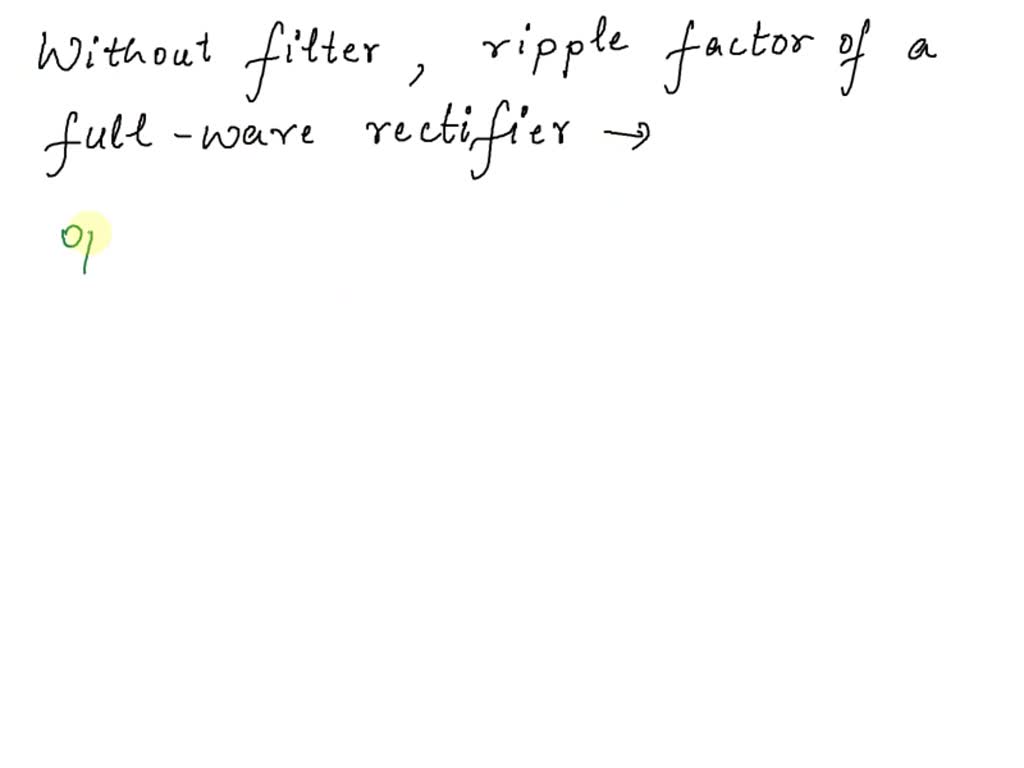 Without filter, ripple factor of a
full-wave rectifier →
op